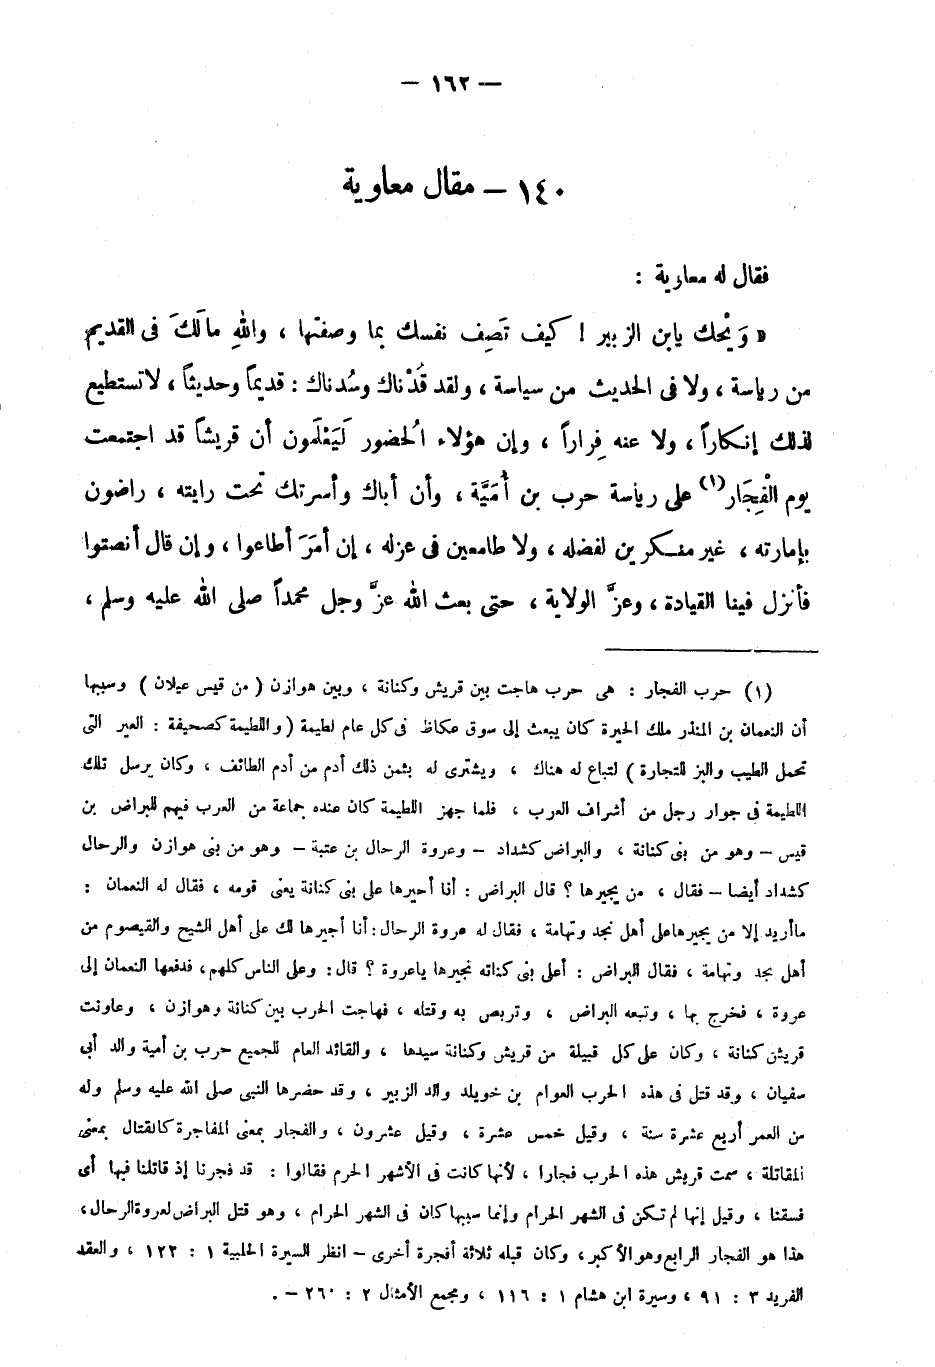 — ١٦٢ —
١٤٠ — مقال معاوية
فقال له معاوية :
« وَيْحك يابن الزبير ! كيف تَصِف نفسك بما وصفتها ، واللهِ مالَكَ فى القديم
من رياسة ، ولا فى الحديث من سياسة ، ولقد قُدْناك وسُدناك : قديمًا وحديثًا ، لا تستطيع
لذلك إنكاراً ، ولا عنه فِراراً ، وإن هؤلاء الحُضور لَيَعْلَمون أن قريشًا قد اجتمعت
يوم الْفِجَار(١) على رياسة حرب بن أُمَيَّة ، وأن أباك وأسرتك تحت رايته ، راضون
بإمارته ، غير منكرين لفضله ، ولا طامعين فى عزله ، إن أمَرَ أطاعوا ، وإن قال أنصتوا
فأنزل فينا القيادة ، وعزَّ الولاية ، حتى بعث الله عزَّ وجل محمداً صلى الله عليه وسلم ،
(١) حرب الفجار : هى حرب هاجت بين قريش وكنانة ، وبين هوازن ( من قيس عيلان ) وسببها
أن النعمان بن المنذر ملك الحيرة كان يبعث إلى سوق عكاظ فى كل عام لطيمة ( واللطيمة كصحيفة : العير التى
تحمل الطيب والبز للتجارة ) لتباع له هناك ، ويشترى له بثمن ذلك أدم من أدم الطائف ، وكان يرسل تلك
اللطيمة فى جوار رجل من أشراف العرب ، فلما جهز اللطيمة كان عنده جماعة من العرب فيهم البراض بن
قيس — وهو من بنى كنانة ، والبراض كشداد — وعروة الرحال بن عتبة — وهو من بنى هوازن والرحال
كشداد أيضا — فقال ، من يجيرها ؟ قال البراض : أنا أجيرها على بنى كنانة يعنى قومه ، فقال له النعمان :
ماأريد إلا من يجيرها على أهل نجد وتهامة ، فقال له عروة الرحال : أنا أجيرها لك على أهل الشيح والقيصوم من
أهل نجد وتهامة ، فقال البراض : أعلى بنى كنانه تجيرها ياعروة ؟ قال : وعلى الناس كلهم ، فدفعها النعمان إلى
عروة ، فخرج بها ، وتبعه البراض ، وتربص به وقتله ، فهاجت الحرب بين كنانة وهوازن ، وعاونت
قريش كنانة ، وكان على كل قبيلة من قريش وكنانة سيدها ، والقائد العام للجميع حرب بن أمية والد أبى
سفيان ، وقد قتل فى هذه الحرب العوام بن خويلد والد الزبير ، وقد حضرها النبى صلى الله عليه وسلم وله
من العمر أربع عشرة سنة ، وقيل خمس عشرة ، وقيل عشرون ، والفجار بمعنى المفاجرة كالقتال بمعنى
المقاتلة ، سمت قريش هذه الحرب فجارا ، لأنها كانت فى الأشهر الحرم فقالوا : قد فجرنا إذ قاتلنا فيها أى
فسقنا ، وقيل إنها لم تكن فى الشهر الحرام وإنما سببها كان فى الشهر الحرام ، وهو قتل البراض لعروة الرحال ،
هذا هو الفجار الرابع وهو الأكبر ، وكان قبله ثلاثة أفجرة أخرى — انظر السيرة الحلبية ١ : ١٢٢ ، والعقد
الفريد ٣ : ٩١ ، وسيرة ابن هشام ١ : ١١٦ ، ومجمع الأمثال ٢ : ٢٦٠ — .